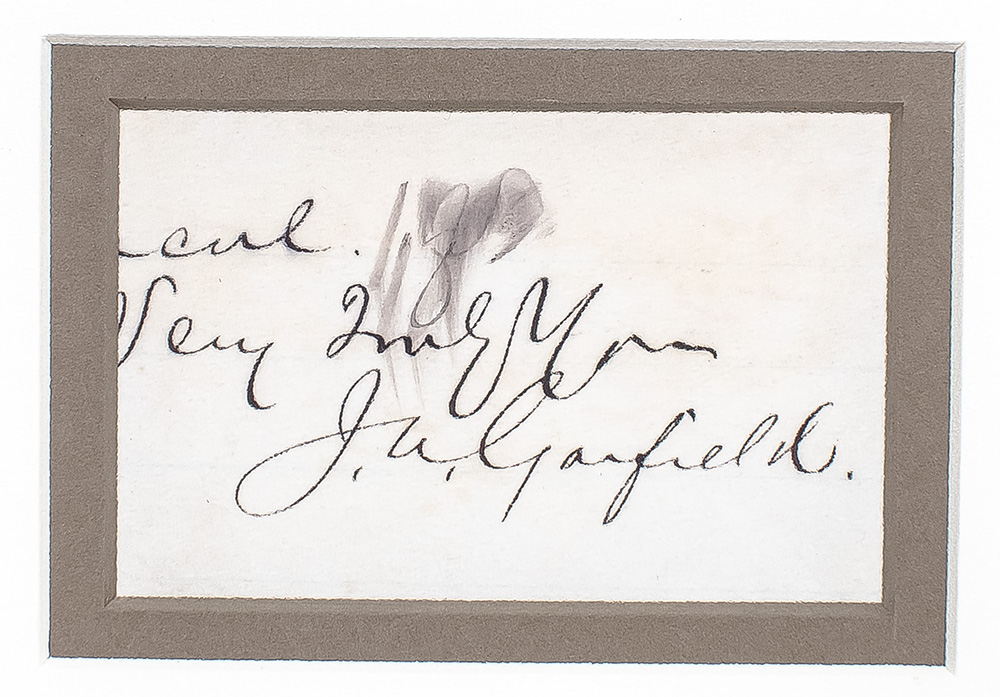 Very Truly Yours
J. A. Garfield.